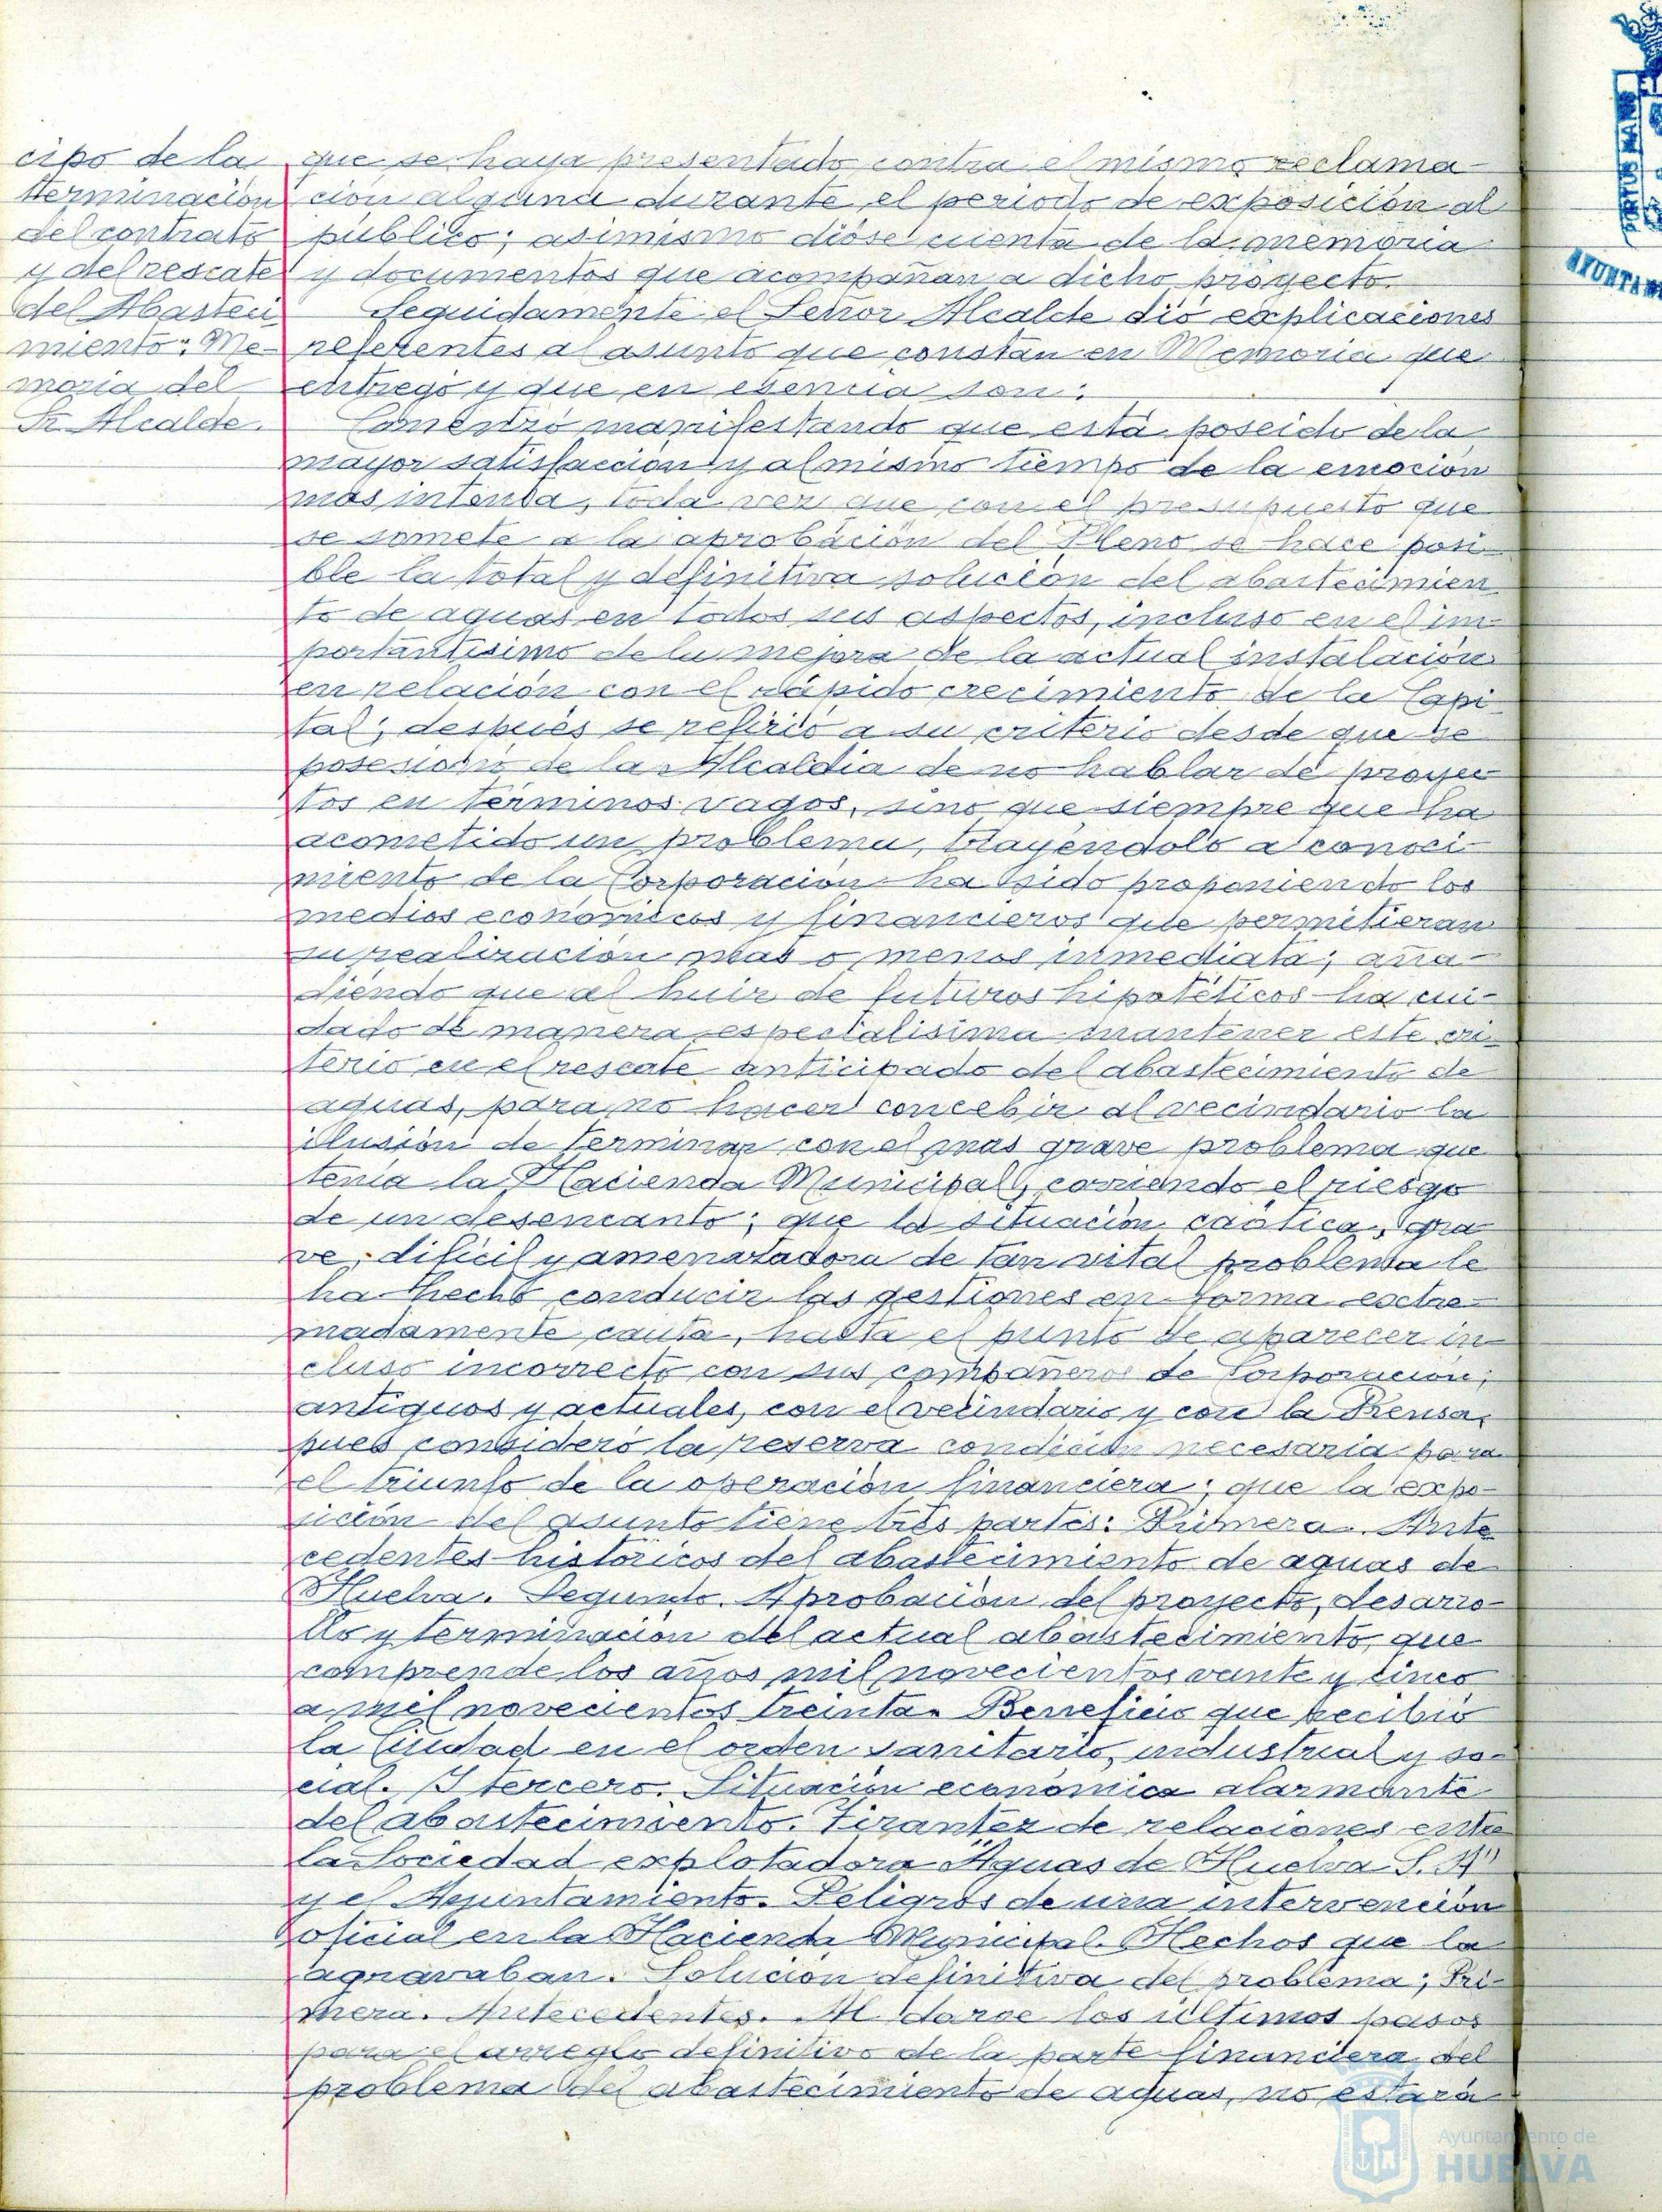 cipo de la
terminación
del contrato
y del rescate
del Abasteci
miento: Me-
moria del
Sr. Alcalde.
que se haya presentado contra el mismo reclama-
ción alguna durante el periodo de exposición al
público; asimismo dióse cuenta de la memoria
y documentos que acompañan a dicho proyecto.
Seguidamente el Señor Alcalde dió explicaciones
referentes al asunto que constan en Memoria que
entregó y que en esencia son:
Comenzó manifestando que está poseido de la
mayor satisfacción y al mismo tiempo de la emoción
mas intensa, toda vez que con el presupuesto que
se somete a la aprobación del Pleno se hace posi
ble la total y definitiva solución del abastecimien
to de aguas en todos sus aspectos, incluso en el im-
portantisimo de la mejora de la actual instalación
en relación con el rápido crecimiento de la Capi
tal; después se refirió a su criterio desde que se
posesionó de la Alcaldia de no hablar de proyec
tos en términos vagos, sino que siempre que ha
acometido un problema, trayéndolo a conoci
miento de la Corporación ha sido proponiendo los
medios económicos y financieros que permitieran
su realización mas o menos inmediata; aña-
diendo que al huir de futuros hipotéticos ha cui-
dado de manera especialisima mantener este cri-
terio en el rescate anticipado del abastecimiento de
aguas, para no hacer concebir al vecindario la
ilusión de terminar con el mas grave problema que
tenia la Hacienda Municipal, corriendo el riesgo
de un desencanto; que la situación caótica, gra
ve, dificil y amenazadora de tan vital problema le
ha hecho conducir las gestiones en forma extre-
madamente cauta, hasta el punto de aparecer in
cluso incorrecto con sus compañeros de Corporación,
antiguos y actuales, con el vecindario y con la Prensa,
pues consideró la reserva condición necesaria para
el triunfo de la operación financiera; que la expo-
sición del asunto tiene tres partes: Primera. Ante
cedentes históricos del abastecimiento de aguas de
Huelva. Segundo. Aprobación del proyecto, desarro-
llo y terminación del actual abastecimiento, que
comprende los años mil novecientos vante y cinco
a mil novecientos treinta. Beneficio que recibió
la Ciudad en el orden sanitario, industrial y so-
cial. Y tercero. Situación económica alarmante
del abastecimiento. Tirantez de relaciones entre
la Sociedad explotadora "Aguas de Huelva S. A"
y el Ayuntamiento. Peligros de una intervención
oficial en la Hacienda Municipal. Hechos que la
agravaban. Solución definitiva del problema; Pri-
mera. Antecedentes. Al darse los últimos pasos
para el arreglo definitivo de la parte financiera del
problema del abastecimiento de aguas, no estará
PORTUS MARIS
AYUNTAM
Ayuntamiento de
HUELVA